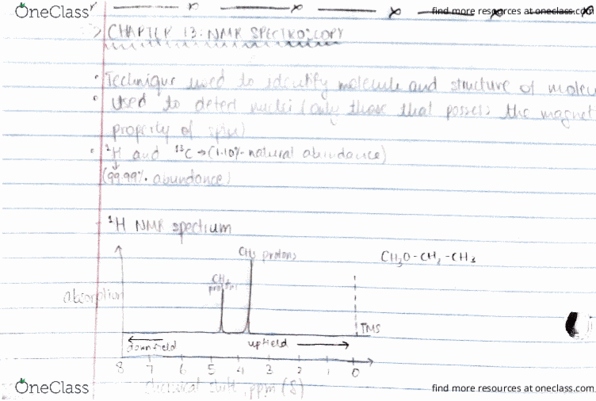 OneClass
find more resources at oneclass.com
CHAPTER 13: NMR SPECTROSCOPY
Technique used to identify molecule and structure of molecu
Used to detect nuclei (only those that possess the magnet
property of spin)
¹H and ¹³C → (1.10% natural abundance)
(99.99% abundance)
¹H NMR spectrum
CH₃ protons
CH₃O-CH₂-CH₃
CH₂
protons
absorption
TMS
downfield
upfield
8 7 6 5 4 3 2 1 0
Chemical shift, ppm (δ)
OneClass
find more resources at oneclass.com